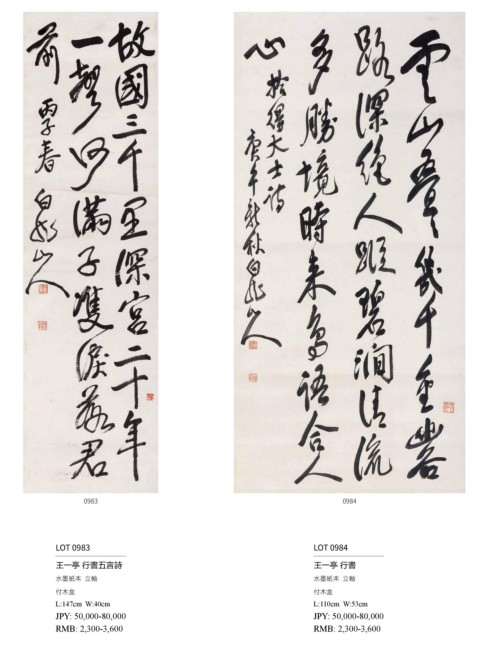 故國三千里深宮二十年
一聲何滿子雙淚落君
前 丙子春 白龍山人
0983
雲山疊疊幾千重幽谷
路深絕人蹤碧澗清流
多勝境時來鳥語合人
心 拾得大士詩
庚午新秋白龍山人
0984
LOT 0983
王一亭 行書五言詩
水墨紙本 立軸
付木盒
L:147cm W:40cm
JPY: 50,000-80,000
RMB: 2,300-3,600
LOT 0984
王一亭 行書
水墨紙本 立軸
付木盒
L:110cm W:53cm
JPY: 50,000-80,000
RMB: 2,300-3,600